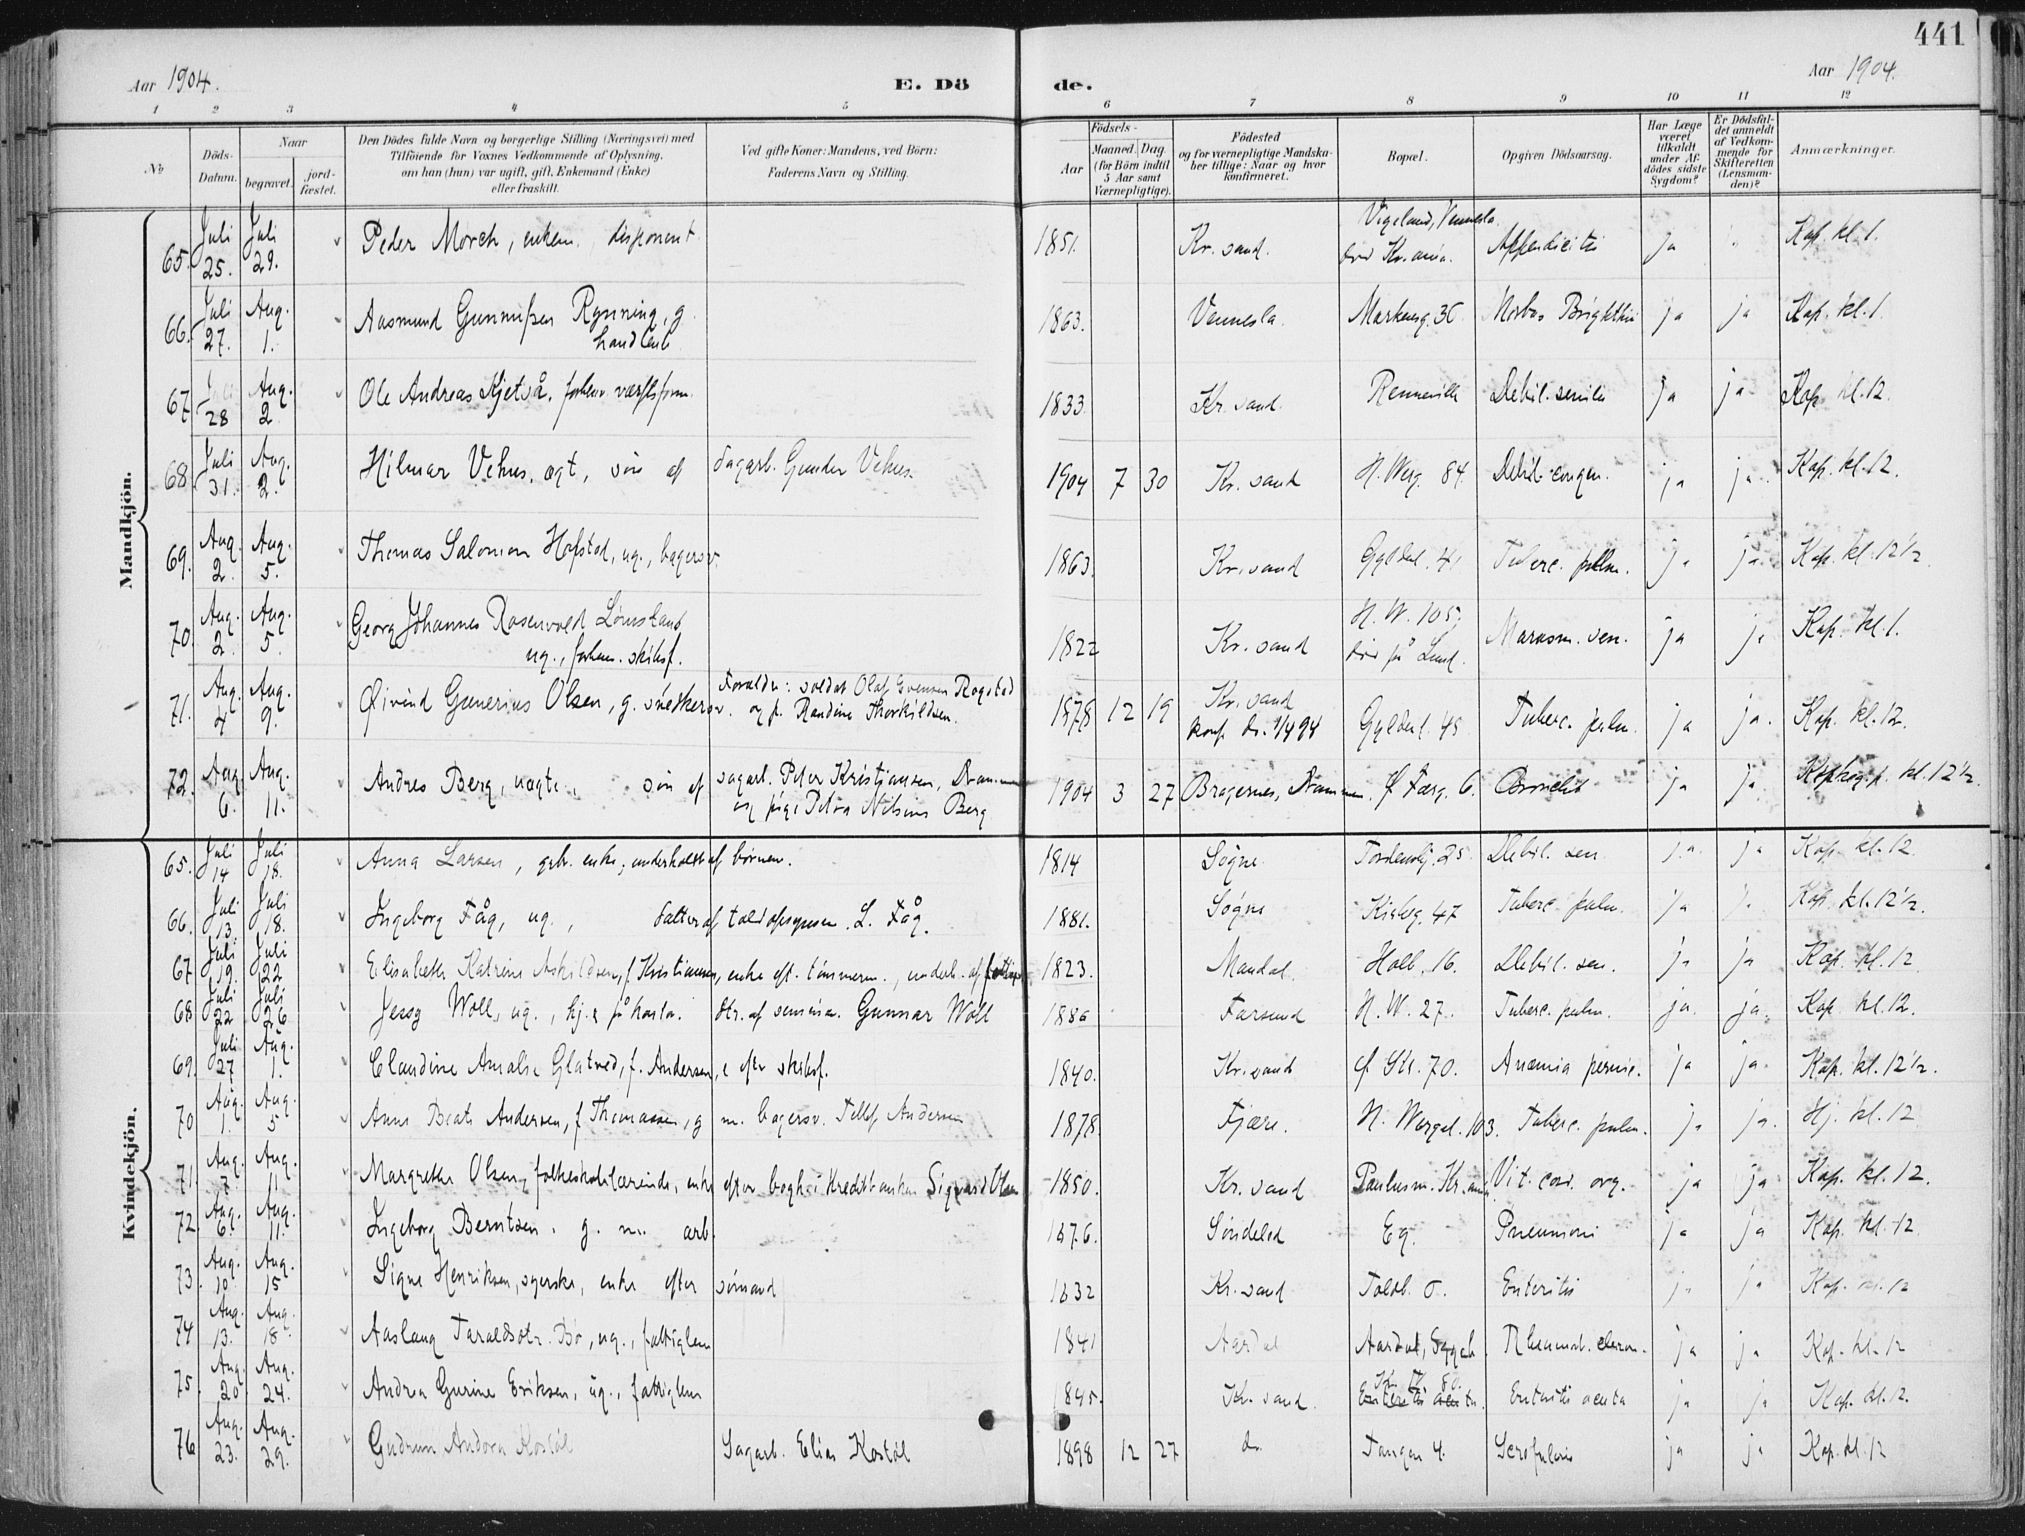 441
Aar 1904.
E. Dö
de.
Aar 1904.
1 2 3 4 5 6 7 8 9 10 11 12
No
Döds-Datum.
Naar
begravet.
jord-fæstet.
Den Dödes fulde Navn og borgerlige Stilling (Næringsvei) med
Tilföiende for Voxnes Vedkommende af Oplysning,
om han (hun) var ugift, gift, Enkemand (Enke)
eller fraskilt.
Ved gifte Koner: Mandens, ved Börn:
Faderens Navn og Stilling.
Födsels-
Aar
Maaned. Dag
(for Börn indtil
5 Aar samt
Værnepligtige).
Födested
og for værnepligtige Mandska-
ber tillige: Naar og hvor
konfirmeret.
Bopæl.
Opgiven Dödsaarsag.
Har Læge
været
tilkaldt
under Af-
dödes sidste
Sygdom?
Er Dödsfal-
det anmeldt
af Vedkom-
mende for
Skifteretten
(Lensman-
den)?
Anmærkninger.
Mandkjön.
65. Juli 25. Juli 29. Peder Morch, enkem., disponent 1851. Kr. sand. Vigeland, Vennesla. Kr. ania. Appendicitis ja Kap. kl. 1.
66. Juli 27. Aug. 1. Aasmund Gunnufsen Rynning, g.
1863. Vennesla. Markensg. 36 Morbus Brightii ja ja Kap. kl. 1.
67 28 Aug. 2 Ole Andreas Kjetså, 1833. Kr. sand. Debil. senilis ja ja Kap. kl. 12.
68 Juli 31. Aug. 2. Hilmar Vehus. ægt., søn af dagarb. Gunder Vehus. 1904 7 30 Kr. sand H. Werg. 84. Debil. congen. ja ja. Kap. kl. 12.
69. Aug. 2. Aug. 5. Thomas Salomon Hofstad, ug., bagersv. 1863. Kr. sand Gyldenl. 41 Tuberc. pulm. ja ja. Kap. kl. 12 1/2.
70. Aug. 2. Aug. 5. Georg Johannes Rosenvold
ug., forhenv. skibsf. 1822 Kr. sand H. W. 105, på Lund. Marasm. sen. ja ja Kap. kl. 1.
71. Aug. 4 Aug. 9. Øivind Gunerius Olsen, g. snedkersv. Forældre: soldat Olaf Svensen Rogstad
og p. Randine Thorkildsen. 1878 12 19 Kr. sand
konf. do. 1/4 94 Gyldenl. 45 Tuberc. pulm. ja ja. Kap. kl. 12.
72. Aug. 6. Aug. 11. Andres Berg, uægte, søn af sagarb. Peter Kristiansen, Drammen
og pige Petra Nilsine Berg 1904 3 27 Bragernes, Drammen. ja ja. kl. 12 1/2.
Kvindekjön.
65. Juli 14 Juli 18. Anna Larsen, enke; underholdt af børnene. 1814 Søgne Tordenskj. 25. Debil. sen. ja ja Kap. kl. 12.
66. Juli 13. Juli 18. Ingeborg Fåg, ug., datter af toldopsynsm. L. Fåg. 1881. Søgne Kirkeg. 47 Tuberc. pulm. ja Kap. kl. 12 1/2.
67 Juli 19. Juli 22 Elisabeth Katrine Askildsen, f. Kristiansen, enke eft. tømmerm., underh. af 1823. Mandal. Holb. 16. Debil. sen. ja ja Kap. kl. 12
68 Juli 22 Juli 26 Jessy Woll, ug., dtr. af Gunnar Woll Farsund H. W. 27. Tuberc. pulm. ja. ja. Kap. kl. 12.
69. Juli 27 Aug. 1. Claudine Amalie Glatved, f. Andersen, e. efter skibsf. 1840. Kr. sand 70. Anæmia pernic. ja ja. Kap. kl. 12 1/2.
70 Aug. 1. Aug. 5 Anne Beate Andersen, f. Thomassen, g m. bagersv. Tellef Andersen 1878. Fjære. H. Wergel. 103. Tuberc. pulm. ja ja. Hj. kl. 12
71. Aug. 7. Aug. 11 Margrethe Olsen, folkeskolelærerinde, enke efter bogh. i Kreditbanken Sigvard Olsen 1850. Kr. sand Vit. cord. org. ja ja Kap. kl. 12.
72. Aug. 6. Aug. 11. Ingeborg Berntsen. g. m. arb. 1876. Søndeled Eg. Pneumoni ja ja Kap. kl. 12
73. Aug. 10 Aug. 15 Signe Henriksen, syerske, enke efter sømand 1832 Kr. sand Toldb. Enteritis ja ja Kap. kl. 12
74 Aug. 13. Aug. 18. Aaslaug Taraldsdtr. Bø, ug., fattiglem 1841 Aardal Aardal, Bygl. Rheumat. chron. ja ja Kap. kl. 12
75. Aug. 20 Aug. 24. Andrea Gurine Eriksen, ug., fattiglem 1845. Kr. sand. Enteritis acuta ja ja Kap. kl. 12.
76 Aug. 23. Aug. 29. Gudrun Andora Kostøl Sagarb. Elias Kostøl 1898 12 27 do. Tangen 4. Scrofulosis ja ja Kap. kl. 12